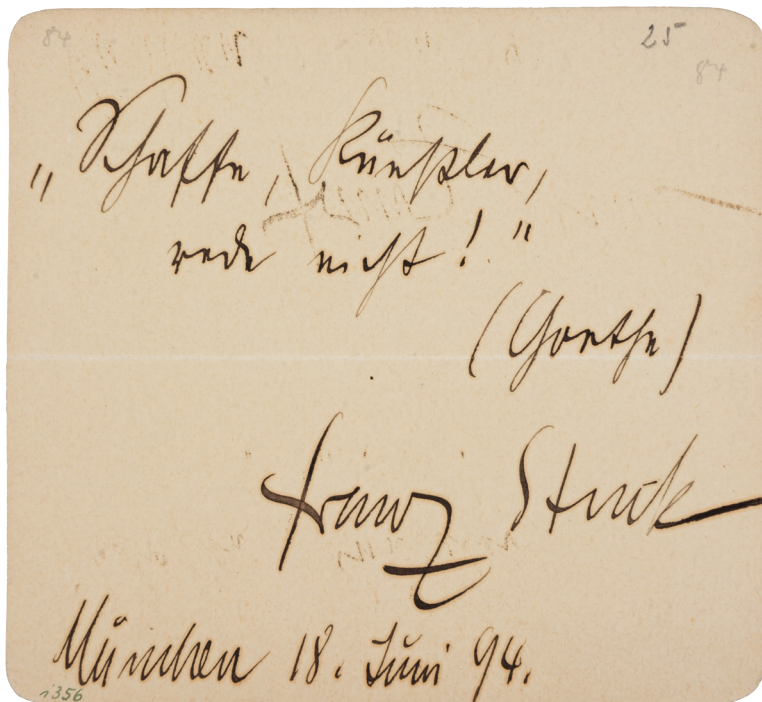 84
25
84
„Schaffe, Künstler,
rede nicht!"
(Goethe)
Franz Stuck
München 18. Juni 94.
1356